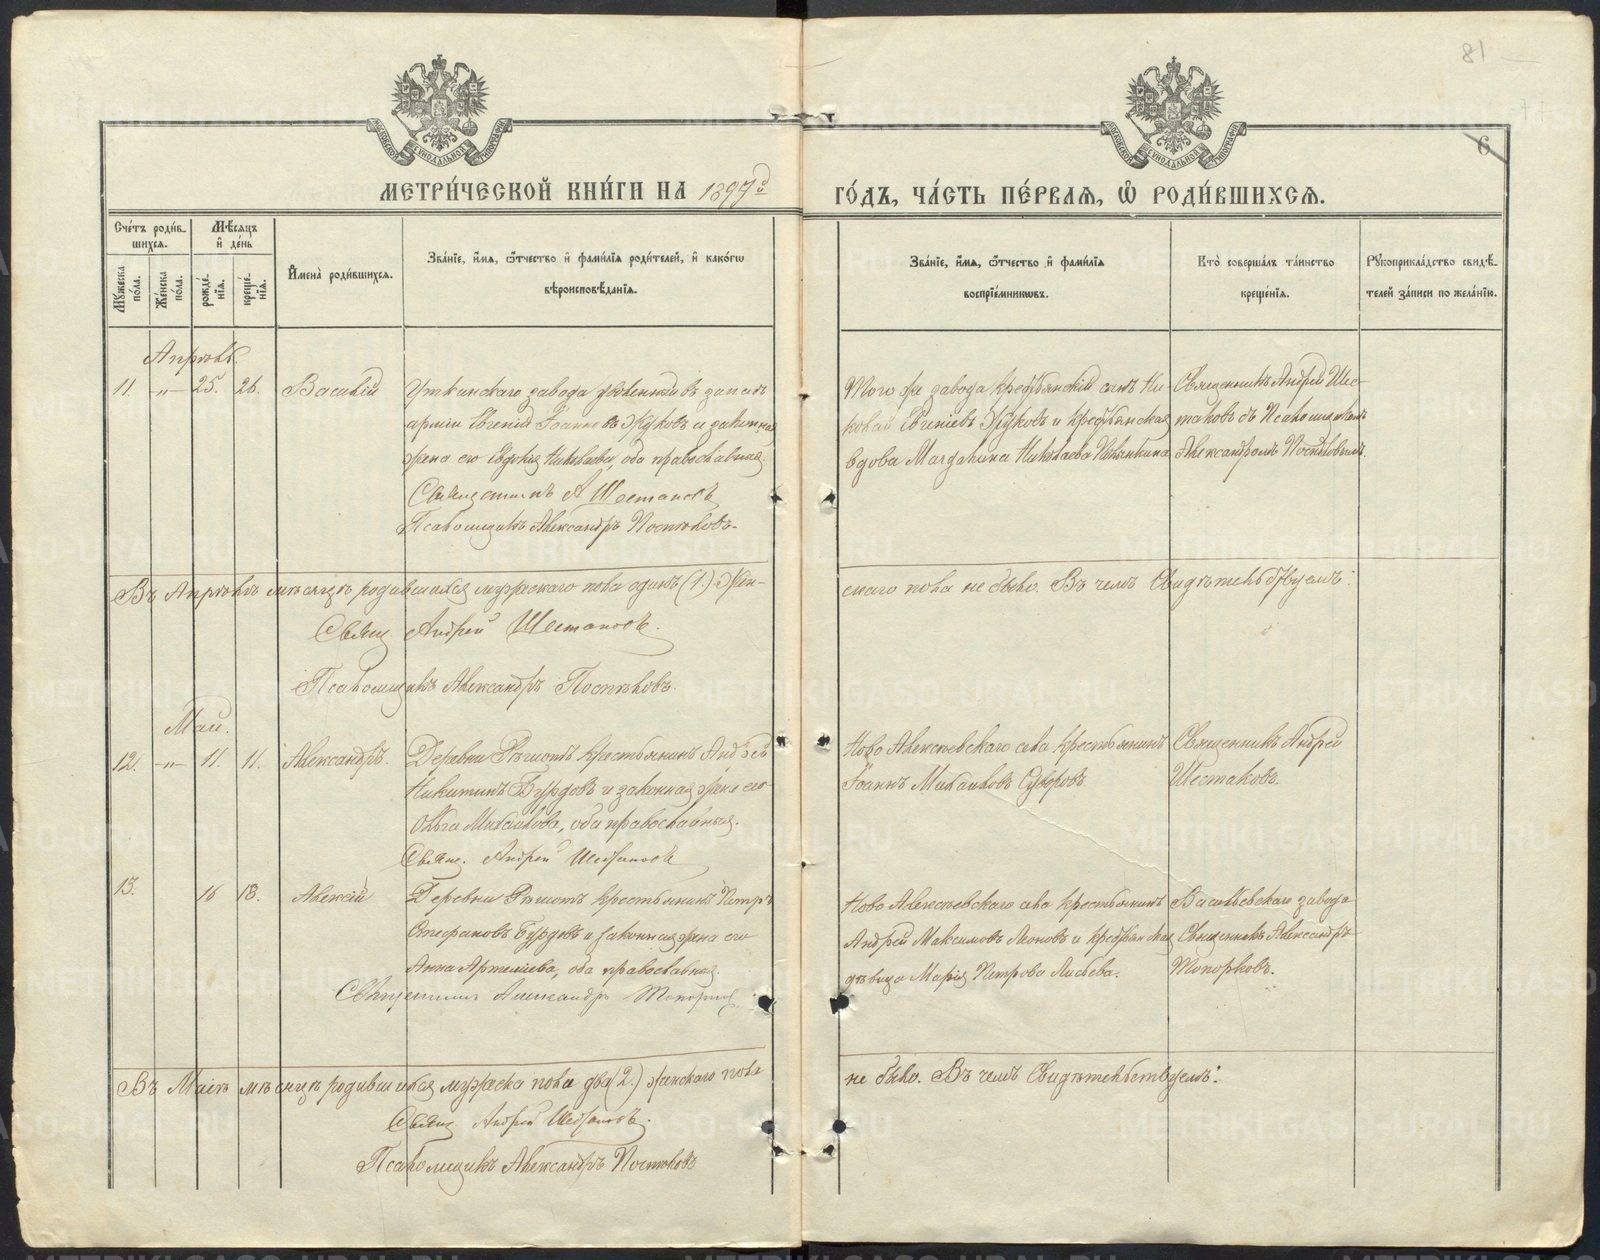 81
6
МОСКОВСКОЙ СѴНОДАЛЬНОЙ ТИПОГРАФІИ
МОСКОВСКОЙ СѴНОДАЛЬНОЙ ТИПОГРАФІИ
МЕТРИ́ЧЕСКОЙ КНИ́ГИ НА 1899й ГО́ДЪ, ЧА́СТЬ ПЕ́РВАЯ, Ѡ҆ РОДИ́ВШИХСЯ.
Сче́тъ роди́в-
шихся.
Мѣ́сяцъ
и҆ де́нь
Мꙋ́жеска
по́ла.
Же́нска
по́ла.
рожде́-
нїя.
креще́-
нїя.
И҆мена̀ роди́вшихся.
Зва́нїе, и҆́мя, ѻ҆́тчество и҆ фами́лїя роди́телей, и҆ како́гѡ
вѣроисповѣ́данїя.
Зва́нїе, и҆́мя, ѻ҆́тчество и҆ фами́лїя
воспрїе́мникѡвъ.
Кто̀ соверша́лъ та́инство
креще́нїя.
Рꙋкоприкла́дство свидѣ́-
телей за́писи по жела́нїю.
Апрѣль.
11. -„- 25. 26. Василій
Уткинскаго завода уволенный въ запасъ
арміи Евгеній Іоанновъ Жуковъ и законная
жена его Евдокія Николаева, оба православные.
Священникъ А Шестаковъ
Псаломщикъ Александръ Поспѣловъ.
Того же завода крестьянскій сынъ Ни-
колай Евгеніевъ Жуковъ и крестьянская
вдова Магдалина Николаева
Священникъ Андрей Шес-
таковъ съ Псаломщикомъ
Александромъ Поспѣловымъ.
Въ Апрѣлѣ мѣсяцѣ родившихся мужескаго пола одинъ (1.) Жен-
скаго пола не было. Въ чемъ Свидѣтельствуемъ:
Свящ Андрей Шестаковъ.
Псаломщикъ Александръ Поспѣловъ.
Май.
12. -„- 11. 11. Александръ.
Деревни Рѣшотъ крестьянинъ Андрей
Никитинъ Бурдовъ и законная жена его
Ольга Михаилова, оба православные.
Свящ. Андрей Шестаковъ
Ново Алексѣевскаго села крестьянинъ
Іоаннъ Михаиловъ Суворовъ.
Священникъ Андрей
Шестаковъ.
13. 16 18. Алексій
Деревни Рѣшотъ крестьянинъ Петръ
Стефановъ Бурдовъ и законная жена его
Анна Артеміева, оба православные.
Священникъ Александръ Топорковъ
Ново Алексѣевскаго села крестьянинъ
Андрей Максимовъ Леоновъ и крестьянская
дѣвица Марія Петрова Лисьева.
Васильевскаго завода
Священникъ Александръ
Топорковъ.
Въ Маѣ мѣсяцѣ родившихся мужеска пола два (2.) женскаго пола
не было. Въ чемъ Свидѣтельствуемъ:
Свящ Андрей Шестаковъ.
Псаломщикъ Александръ Поспѣловъ
METRIKI.GASO-URAL.RU